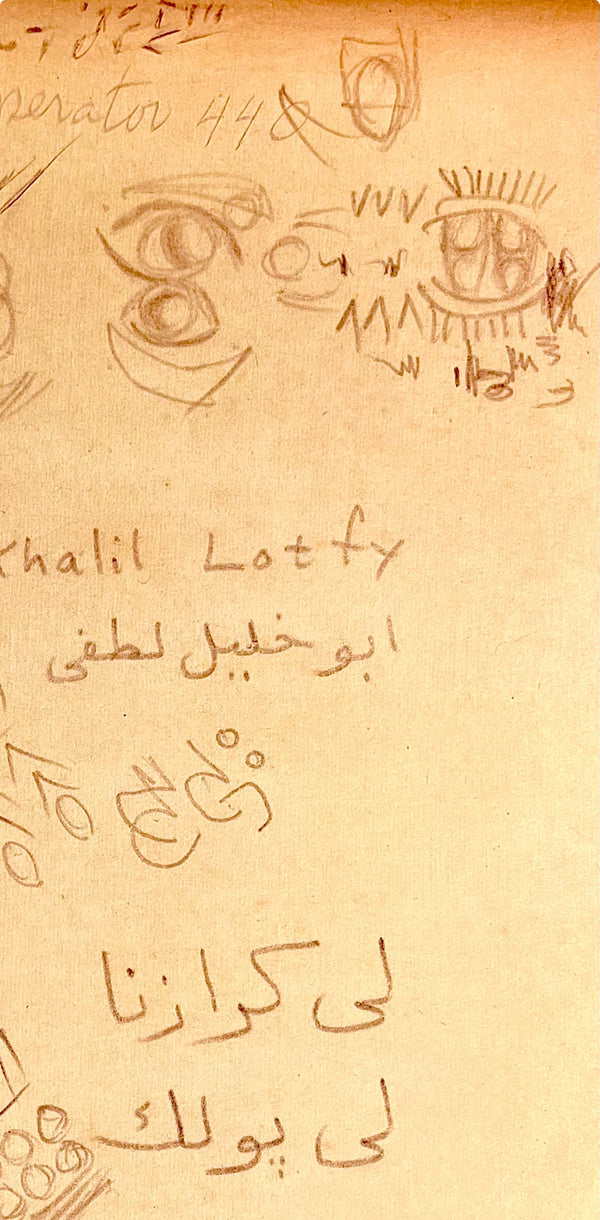 perator 44
Khalil Lotfy
ابو خليل لطفى
لى كرازنا
لى پولك